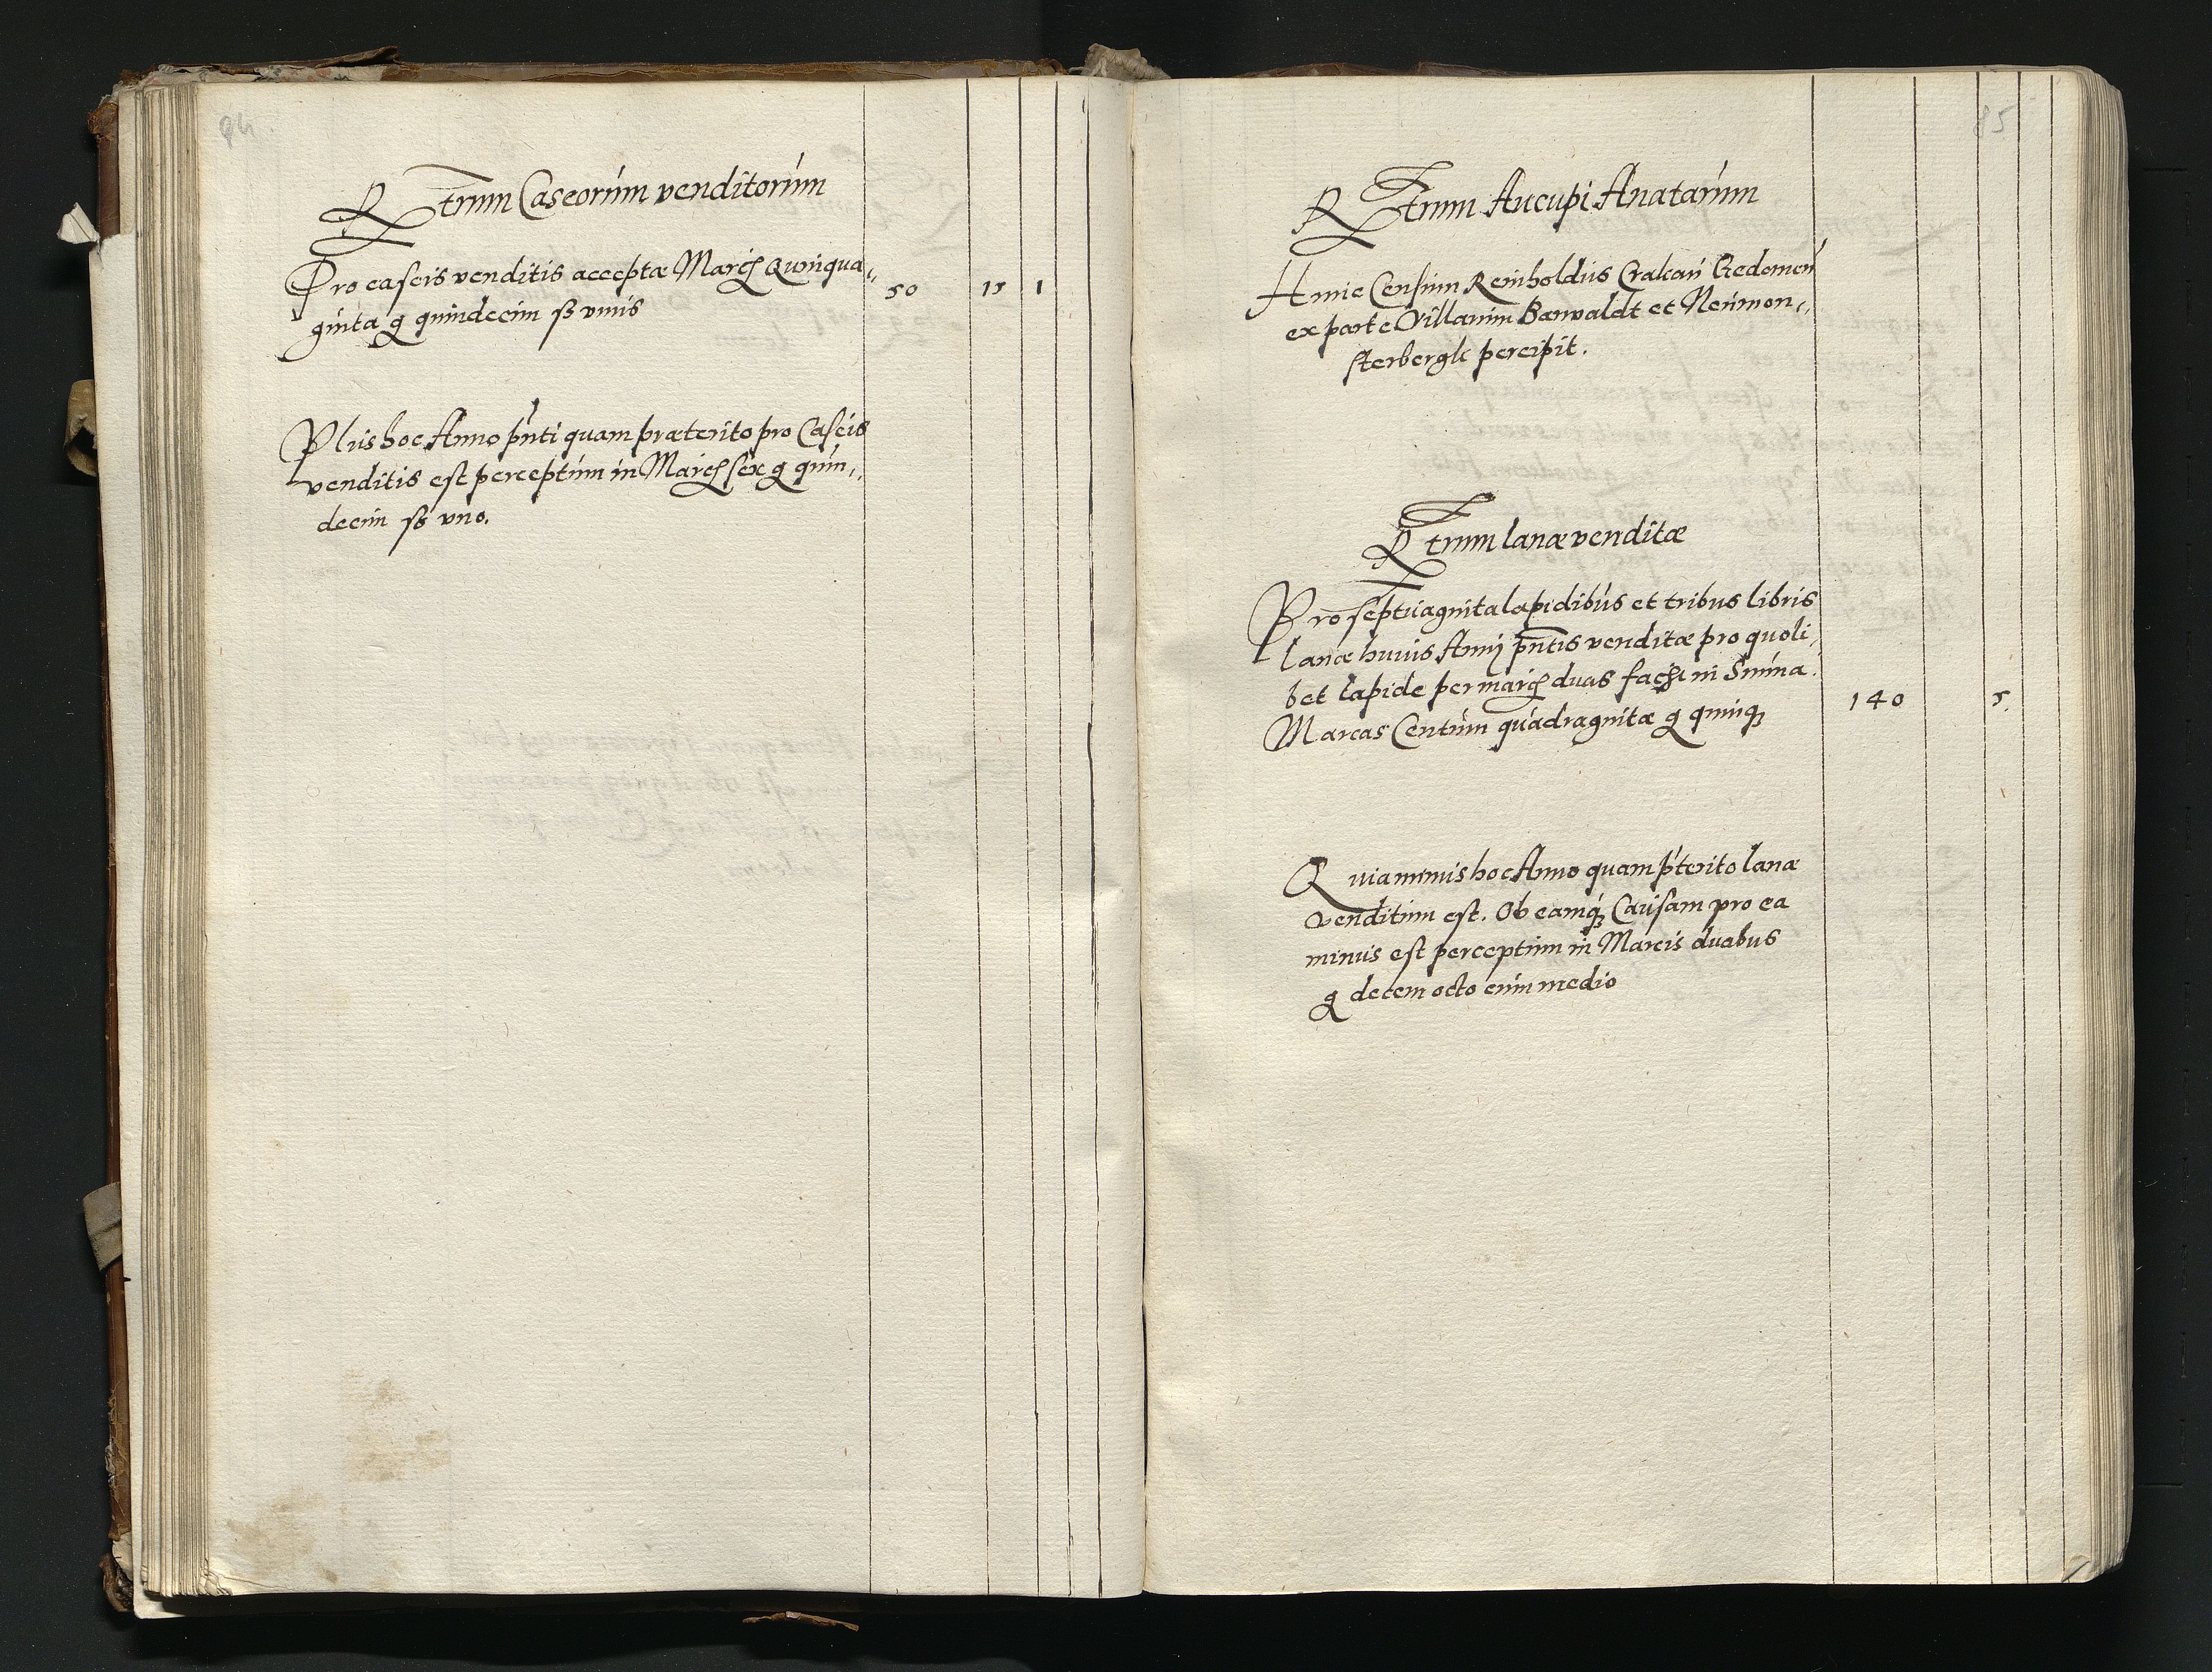 84
Rtrum Caseorum venditorum
Pro caseis venditis acceptæ Marcȝ Quinqua⸗ 50 15 1
ginta g quindecim ß unus
Plus hoc Anno p̄nti quam præterito pro Caseis
venditis est perceptum in Marcȝ sex g quin⸗
decim ß uno.
85
Rtrum Aucupi Anatarum
Hunc Censum Reinholdus Crakau
ex parte Villarum Barwaldt et Neumon⸗
sterbergk percipit.
Rtrum lanæ venditæ
Pro septuaginta lapidibus et tribus libris
lanæ huius Annj p̄ntis venditæ pro quoli⸗
bet lapide per marcȝ duas fac̄ in Suma.
Marcas Centum quadraginta g quinqȝ 140 5.
Quia minus hoc Anno quam p̄terito lanæ
venditum est. Ob eamqȝ Causam pro ea
minus est perceptum in Marcis duabus
g decem octo cum medio